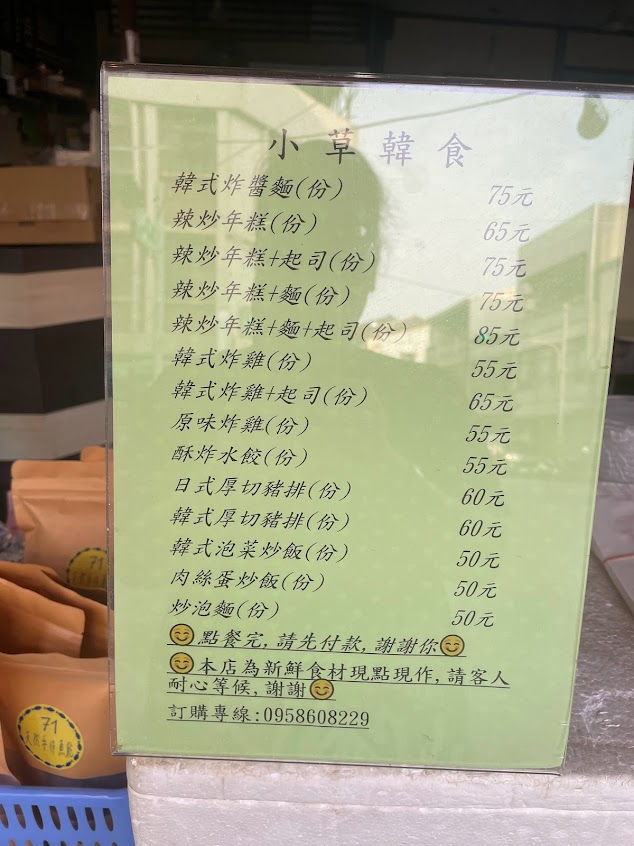 小草韓食
韓式炸醬麵(份) 75元
辣炒年糕(份) 65元
辣炒年糕+起司(份) 75元
辣炒年糕+麵(份) 75元
辣炒年糕+麵+起司(份) 85元
韓式炸雞(份) 55元
韓式炸雞+起司(份) 65元
原味炸雞(份) 55元
酥炸水餃(份) 55元
日式厚切豬排(份) 60元
韓式厚切豬排(份) 60元
韓式泡菜炒飯(份) 50元
肉絲蛋炒飯(份) 50元
炒泡麵(份) 50元
😊點餐完,請先付款,謝謝你😊
😊本店為新鮮食材現點現作,請客人
耐心等候,謝謝😊
訂購專線:0958608229
71
71